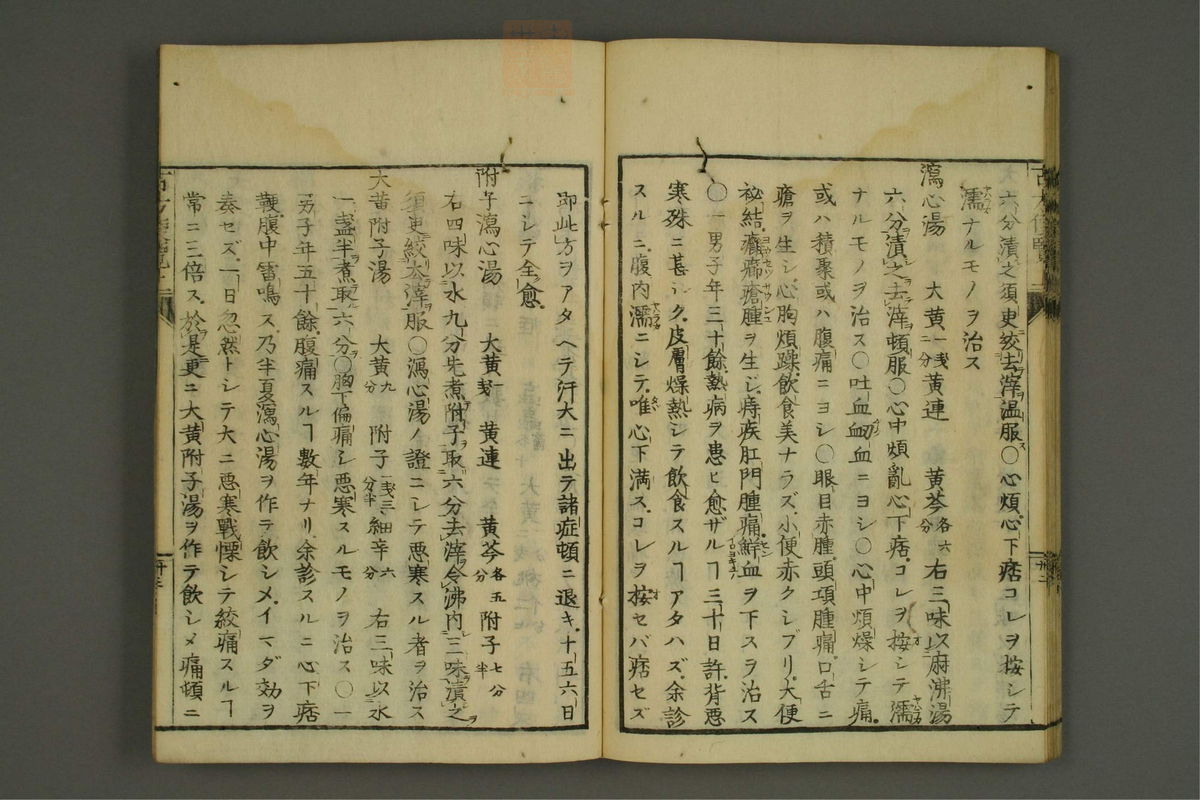 六分漬之須更絞去滓温服〇心煩心下痞コレヲ按シテ
濡ナルモノヲ治ス
瀉心湯 大黄一戔二分黄連 黄芩各六分右三味以麻沸湯
六分漬之去滓頓服〇心中煩亂心下痞コレヲ按シテ濡
ナルモノヲ治ス〇吐血衂血ニヨシ〇心中煩燥シテ痛
或ハ積聚或ハ腹痛ニヨシ〇眼目赤腫頭項腫痛口舌ニ
瘡ヲ生シ心胸煩躁飲食美ナラズ小便赤クシブリ大便
祕結癰癤瘡腫ヲ生ジ痔疾肛門腫痛鮮血ヲ下スヲ治ス
〇一男子年三十餘熱病ヲ患ヒ愈ザルヿ三十日許背悪
寒殊ニ甚シク皮膚燥熱シテ飲食スルヿアタハズ余診
スルニ腹内濡ニシテ唯心下満スコレヲ按セバ痞セズ
即此方ヲアタヘテ汗大ニ出テ諸症頓ニ退キ十五六日
ニシテ全愈
附子瀉心湯 大黄一戔 黄連 黄芩各五分 附子七分半
右四味以水九分先煮附子取六分去滓令沸内三味漬之
須更絞去滓服〇瀉心湯ノ證ニシテ悪寒スル者ヲ治ス
大黄附子湯 大黄九分 附子一戔三分半 細辛六分 右三味以水
一盞半煮取六分〇胸下偏痛シ悪寒スルモノヲ治ス〇一
男子年五十餘腹痛スルヿ數年ナリ余診スルニ心下痞
鞕腹中雷鳴ス乃半夏瀉心湯ヲ作テ飲シメイマダ効ヲ
奏セズ一日忽然トシテ大ニ悪寒戰慄シテ絞痛スルヿ
常ニ三倍ス於是更ニ大黄附子湯ヲ作テ飲シメ痛頓ニ